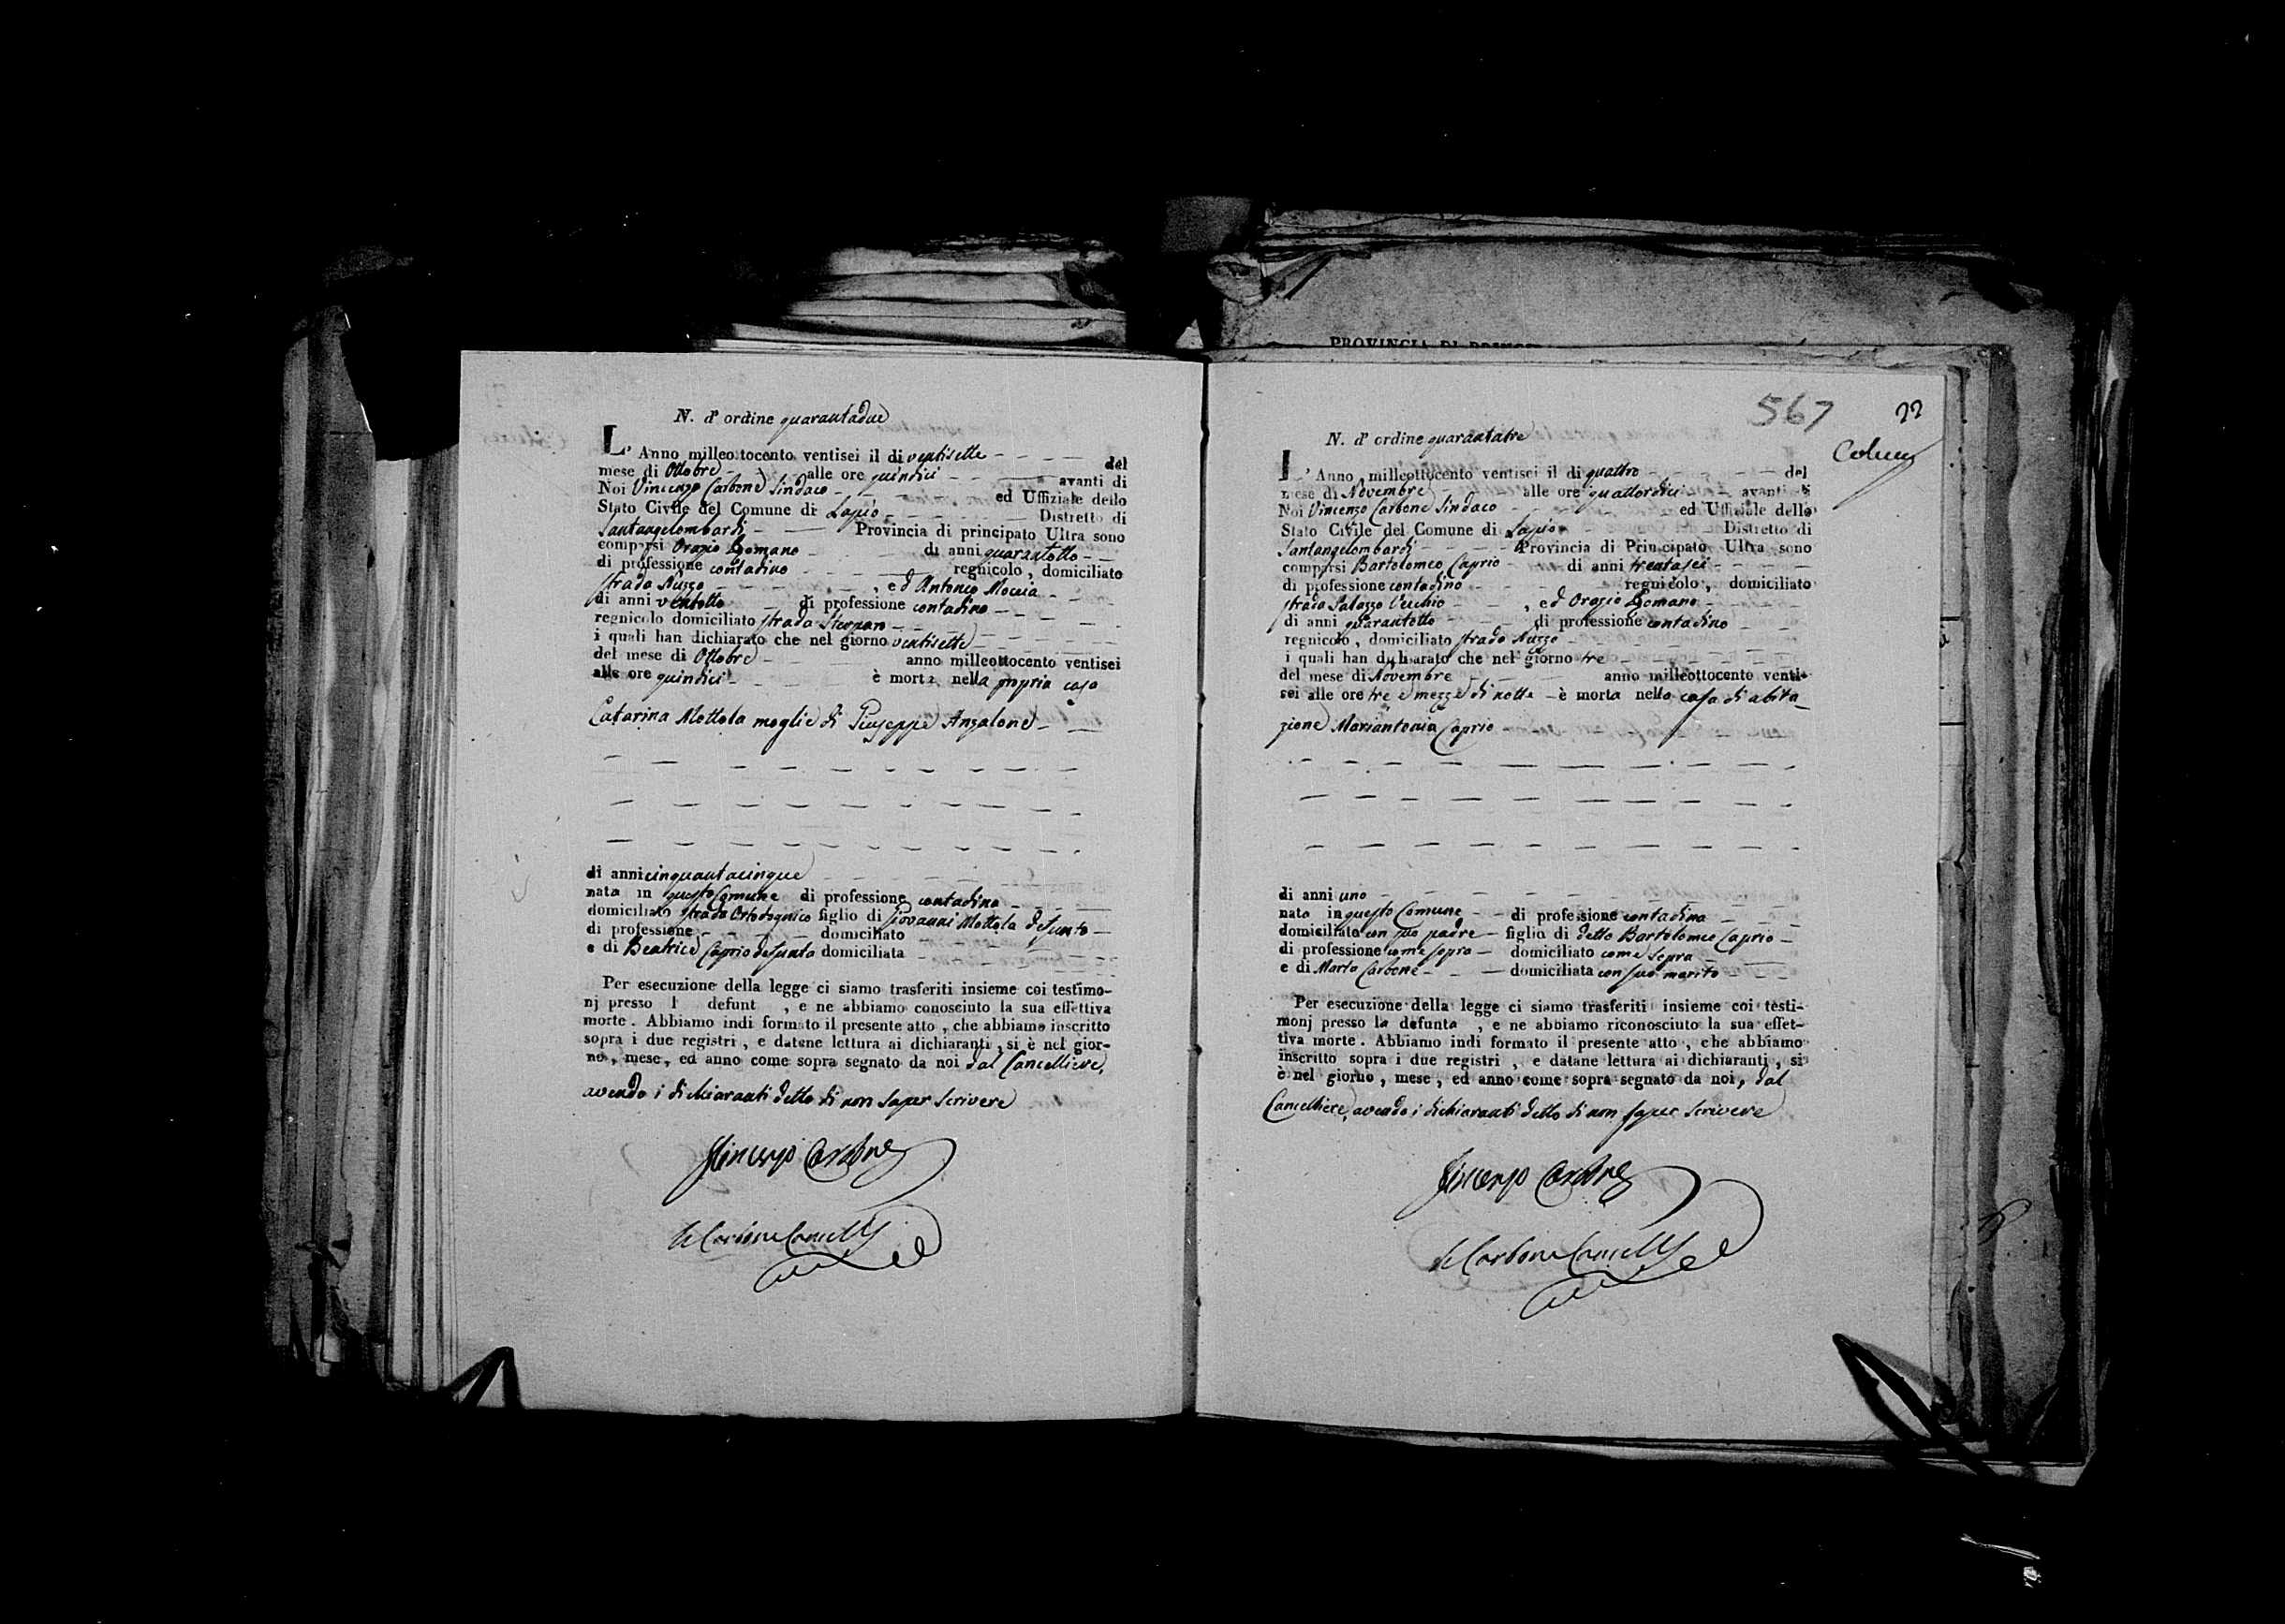 PROVINCIA DI PRINCI
N. d' ordine quarantadue
L' Anno milleottocento ventisei il di ventisette del
mese di Ottobre alle ore quindici avanti di
Noi Vincenzo Carbone Sindaco ed Uffiziale dello
Stato Civile del Comune di Lapio Distretto di
Santangelombardi Provincia di principato Ultra sono
comparsi Orazio Romano di anni quarantotto
di professione contadino regnicolo, domiciliato
strada Nuzzo, ed Antonio Moccia
di anni ventotto di professione contadino
regnicolo domiciliato strada
i quali han dichiarato che nel giorno ventisette
del mese di Ottobre anno milleottocento ventisei
alle ore quindici è morta nella propria casa
Catarina Mottola moglie di Giuseppe Anzalone
di anni cinquantacinque
nata in questo Comune di professione contadina
domiciliato strada figlio di Giovanni Mottola defunto
di professione domiciliato
e di Beatrice Caprio defunta domiciliata
Per esecuzione della legge ci siamo trasferiti insieme coi testimo-
nj presso l defunt , e ne abbiamo conosciuto la sua effettiva
morte. Abbiamo indi formato il presente atto, che abbiamo inscritto
sopra i due registri, e datane lettura ai dichiaranti, si è nel gior-
no, mese, ed anno come sopra segnato da noi dal Cancelliere,
avendo i dichiaranti detto di non saper scrivere
Vincenzo Carbone
de Carbone Cancell
567 22
N. d' ordine quarantatre
L' Anno milleottocento ventisei il di quattro del
mese di Novembre alle ore quattordici avanti di
Noi Vincenzo Carbone Sindaco ed Uffiziale dello
Stato Civile del Comune di Lapio Distretto di
Santangelombardi Provincia di Principato Ultra sono
comparsi Bartolomeo Caprio di anni trentasei
di professione contadino regnicolo, domiciliato
strada Palazzo Vecchio, ed Orazio Romano
di anni quarantotto di professione contadino
regnicolo, domiciliato strada Nuzzo
i quali han dichiarato che nel giorno tre
del mese di Novembre anno milleottocento venti-
sei alle ore tre e mezza di notte è morta nella casa di abita
zione Mariantonia Caprio
di anni uno
nata in questo Comune di professione contadina
domiciliata con suo padre figlia di detto Bartolomeo Caprio
di professione come sopra domiciliato come sopra
e di Marta Carbone domiciliata con suo marito
Per esecuzione della legge ci siamo trasferiti insieme coi testi-
monj presso la defunta, e ne abbiamo riconosciuto la sua effet-
tiva morte. Abbiamo indi formato il presente atto, che abbiamo
inscritto sopra i due registri, e datane lettura ai dichiaranti, si
è nel giorno, mese, ed anno come sopra segnato da noi, dal
Cancelliere, avendo i dichiaranti detto di non saper scrivere
Vincenzo Carbone
de Carbone Cancell